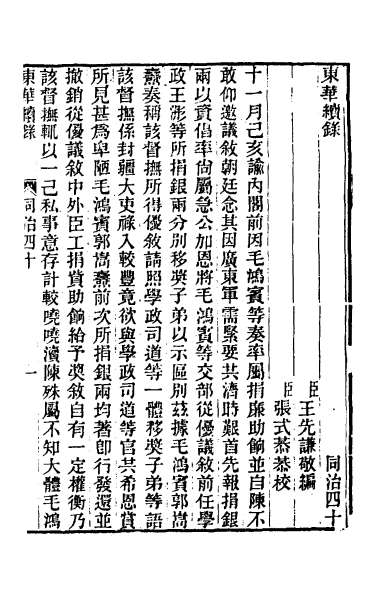 東華續錄　同治四十
臣王先謙敬編
臣張式恭恭校
十一月己亥諭內閣前因毛鴻賓等奏率屬捐廉助餉並自陳不
敢仰邀議敘朝廷念其因廣東軍需緊要共濟時艱首先報捐銀
兩以資倡率尙屬急公加恩將毛鴻賓等交部從優議敘前任學
政王澎等所捐銀兩分別移奬子弟以示區別茲據毛鴻賓郭嵩
燾奏稱該督撫所得優敘請照學政司道等一體移奬子弟等語
該督撫係封疆大吏祿入較豐竟欲與學政司道等官共希恩賞
所見甚爲卑陋毛鴻賓郭嵩燾前次所捐銀兩均著卽行發還並
撤銷從優議敘中外臣工捐貲助餉給予奬敘自有一定權衡乃
該督撫輒以一己私事意存計較嘵嘵瀆陳殊屬不知大體毛鴻
東華續錄　同治四十　一